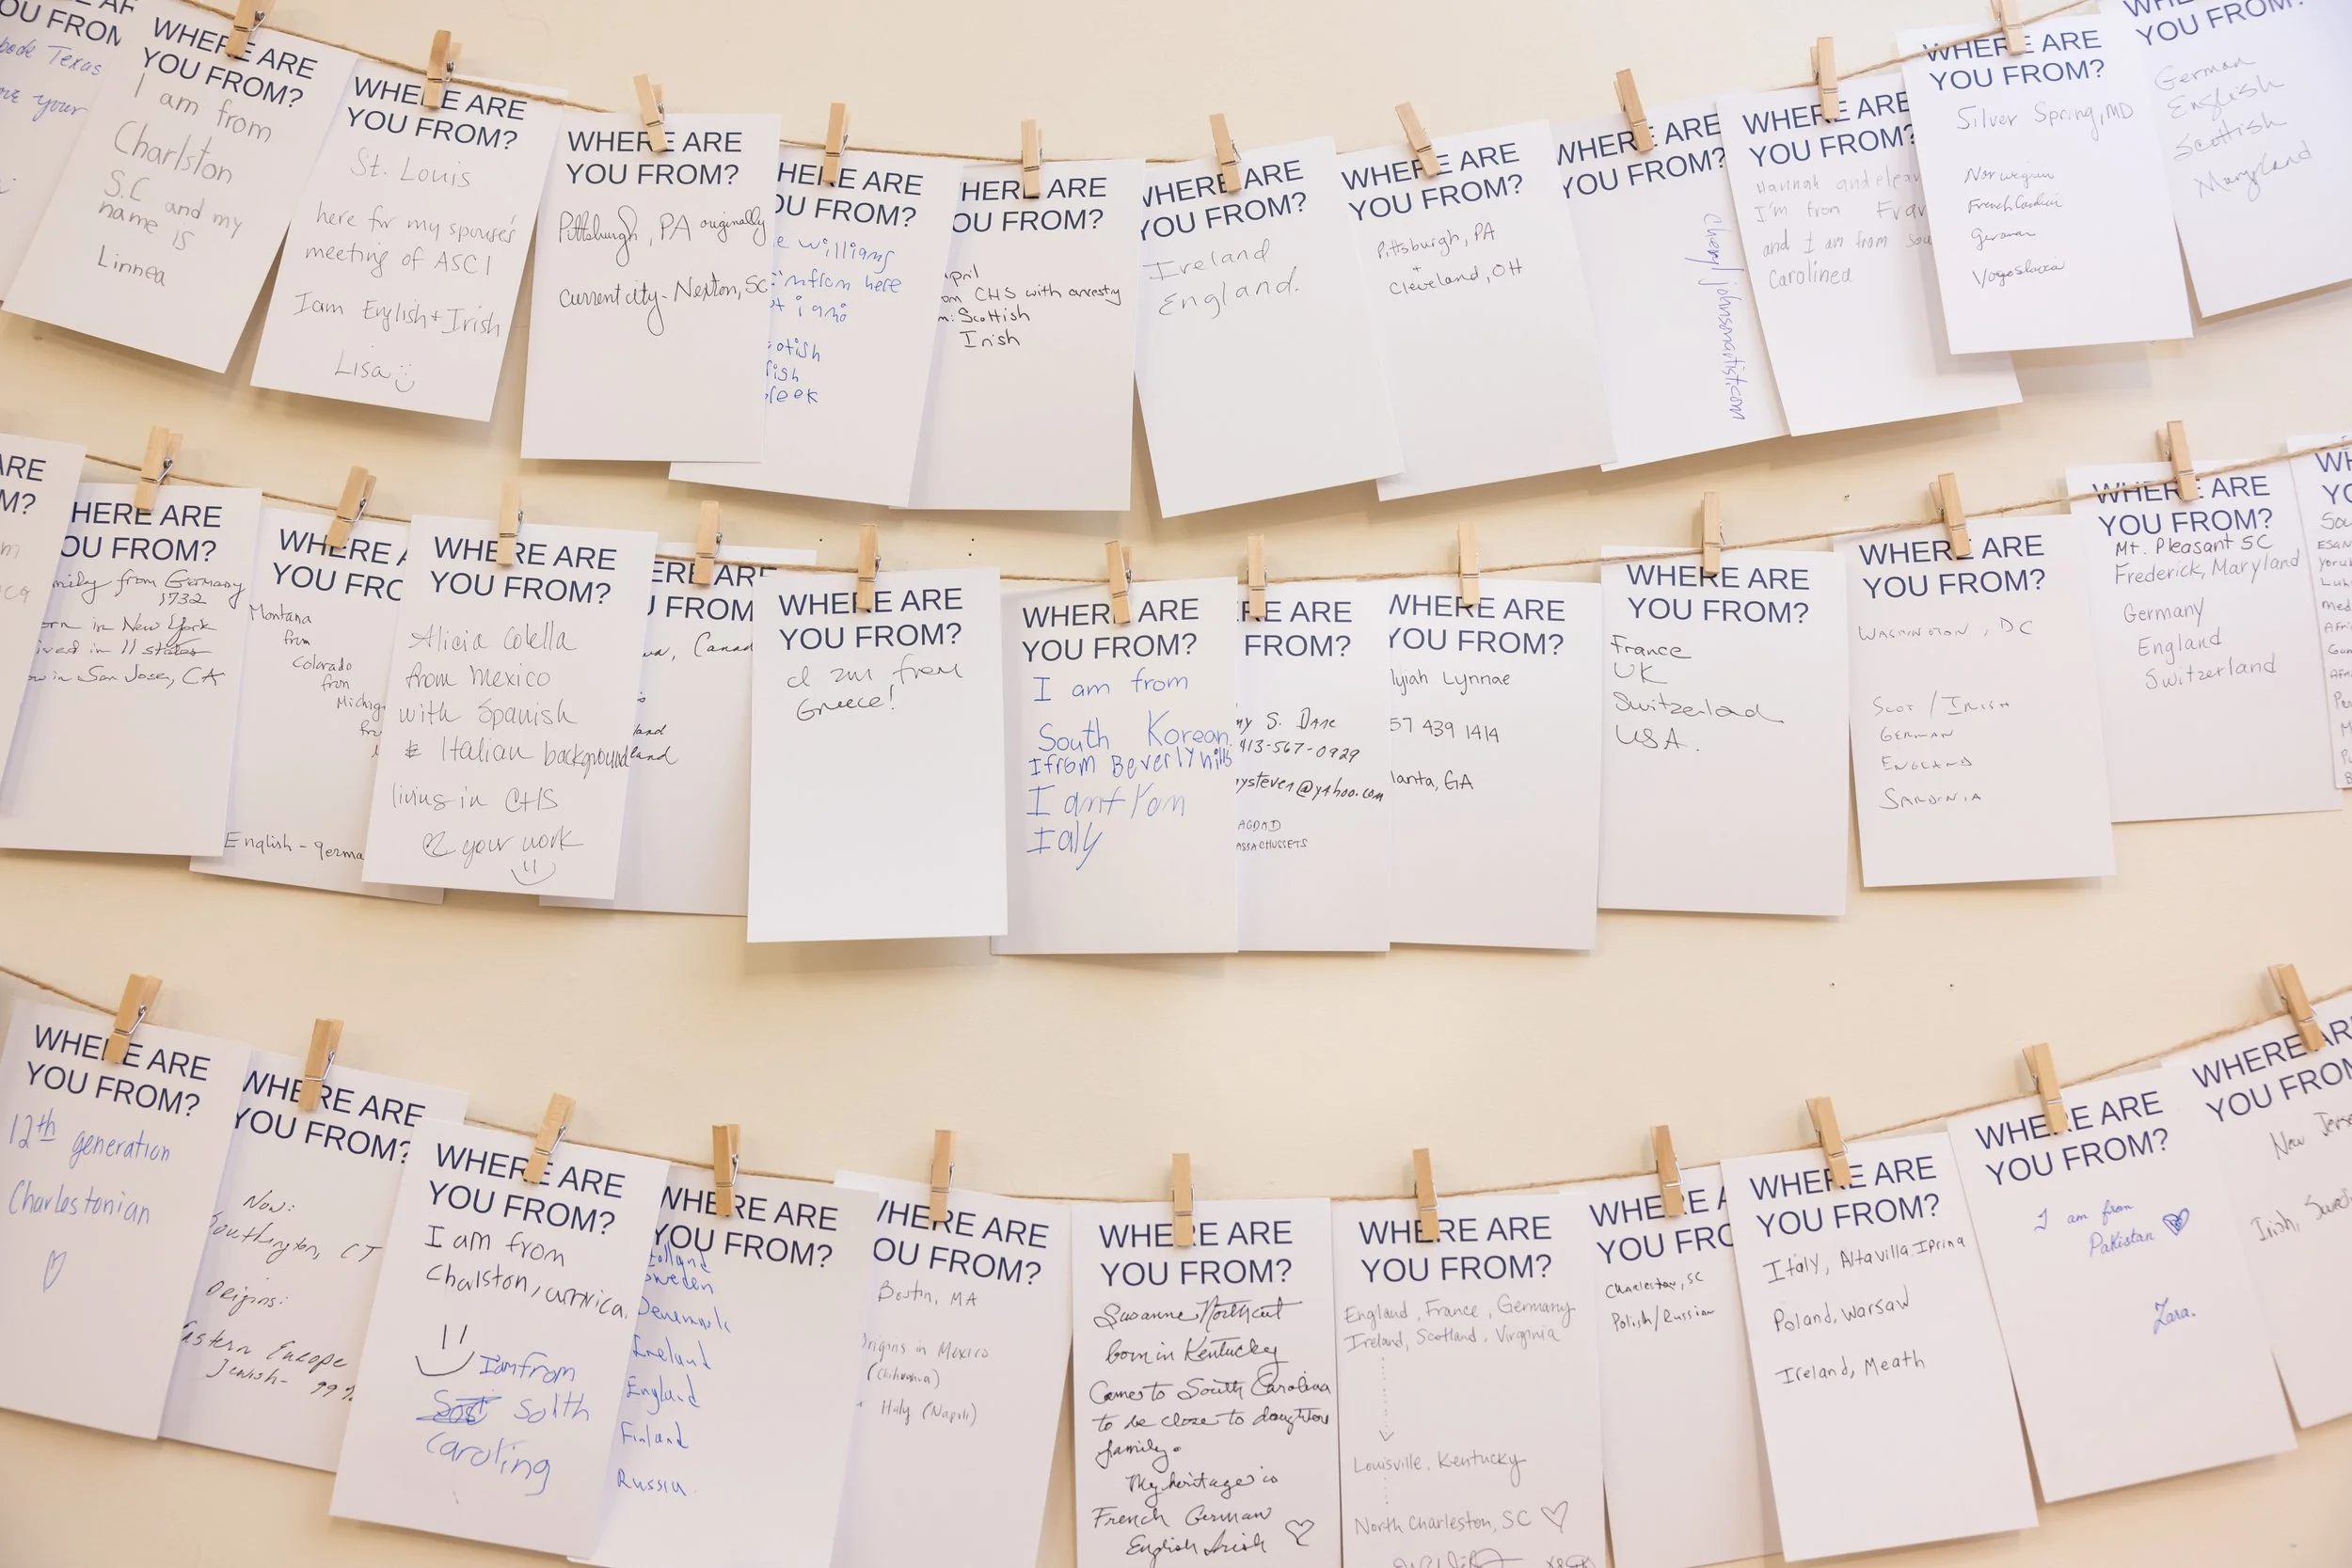 WHERE ARE
YOU FROM?
I am from
Charlston
S.C and my
name is
Linnea
WHERE ARE
YOU FROM?
St. Louis
here for my spouse's
meeting of ASCI
I am English + Irish
Lisa
WHERE ARE
YOU FROM?
Pittsburgh, PA originally
current city - Nexton, SC
HERE ARE
OU FROM?
e williams
from here
i am
otish
ish
reek
HERE ARE
OU FROM?
april
om CHS with ancestry
m: Scottish
Irish
WHERE ARE
YOU FROM?
Ireland
England.
WHERE ARE
YOU FROM?
Pittsburgh, PA
+
Cleveland, OH
WHERE ARE
YOU FROM?
cheryljohnsonartist.com
WHERE ARE
YOU FROM?
Hannah and
I'm from
and I am from sou
Carolinea
WHERE ARE
YOU FROM?
Silver Spring, MD
Norwegian
French Canadian
German
Yogoslavia
YOU FROM?
German
English
Scottish
Maryland
HERE ARE
OU FROM?
mily from Germany
1732
orn in New York
ived in 11 states
w in San Jose, CA
WHERE A
YOU FRO
Montana
from
Colorado
from
Michig
English - germa
WHERE ARE
YOU FROM?
Alicia Colella
from Mexico
with Spanish
& Italian background
living in CHS
your work
ERE ARE
U FROM
Canad
land
land
WHERE ARE
YOU FROM?
I am from
Greece!
WHERE ARE
YOU FROM?
I am from
South Korean
I from Beverly hills
I am from
Italy
RE ARE
FROM?
ny S. Dane
413-567-0929
ysteven@yahoo.com
AGDAD
ASSACHUSSETS
WHERE ARE
YOU FROM?
lyiah Lynnae
57 439 1414
lanta, GA
WHERE ARE
YOU FROM?
France
UK
Switzerland
USA.
WHERE ARE
YOU FROM?
WASHINGTON, DC
SCOT / IRISH
GERMAN
ENGLAND
SARDINIA
WHERE ARE
YOU FROM?
Mt. Pleasant SC
Frederick, Maryland
Germany
England
Switzerland
WHERE ARE
YOU FROM?
12th generation
Charlestonian
WHERE ARE
YOU FROM?
Now:
Southington, CT
Origins:
Eastern Europe
Jewish - 99%
WHERE ARE
YOU FROM?
I am from
Charlston,
I am from
South
Caroling
WHERE ARE
YOU FROM?
Holland
Sweden
Denmark
Ireland
England
Finland
Russia
WHERE ARE
OU FROM?
Boston, MA
Origins in Mexico
(Chihuahua)
Italy (Napoli)
WHERE ARE
YOU FROM?
Susanne Northcut
born in Kentucky
Came to South Carolina
to be close to daughters
family.
My heritage is
French German
English Irish
WHERE ARE
YOU FROM?
England, France, Germany
Ireland, Scotland, Virginia
Louisville, Kentucky
North Charleston, SC
WHERE A
YOU FRO
Charleston, SC
Polish/Russian
WHERE ARE
YOU FROM?
Italy, Altavilla Irpina
Poland, Warsaw
Ireland, Meath
WHERE ARE
YOU FROM?
I am from
Pakistan
Zara.
WHERE AR
YOU FROM
New Jers
Irish, Swed